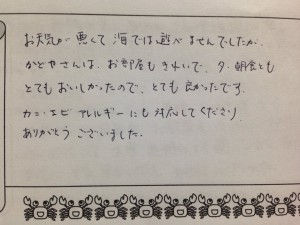 お天気が悪くて海では遊べませんでしたが、
かどやさんは、お部屋もきれいで、夕、朝食とも
とてもおいしかったので、とても良かったです。
カニ・エビアレルギーにも対応してくださり
ありがとうございました。